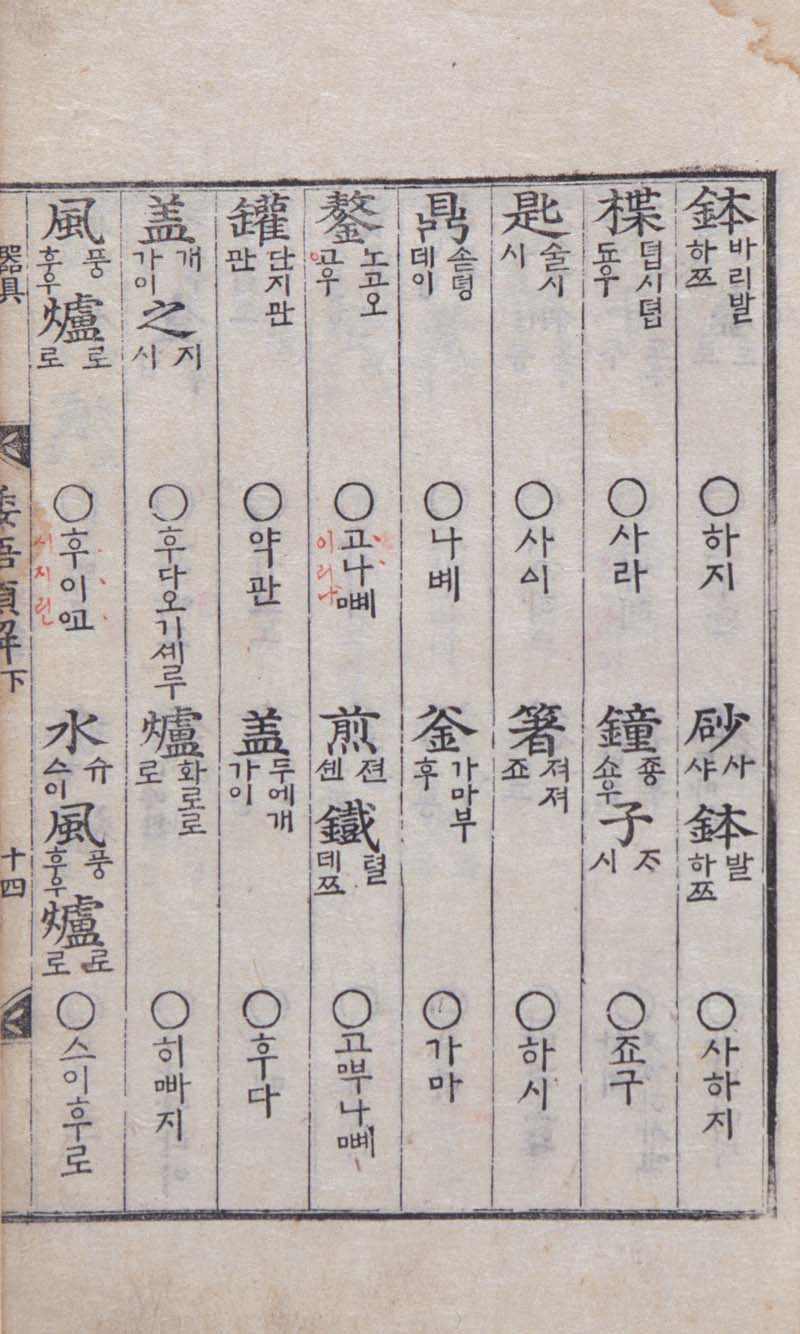 鉢 바리발 하쯔 ○하지 砂 사 샤 鉢 발 하쯔 ○사하지
楪 뎝시뎝 됴우 ○사라 鐘 죵 쇼우 子 ᄌᆞ 시 ○죠구
匙 술시 시 ○사ᅀᅵ 箸 져져 죠 ○하시
鼎 솓뎡 데이 ○나볘 釜 가마부 후 ○가마
鏊 노고오 고우 ○고나몌 煎 젼 센 鐵 텰 데쯔
罐 단지관 관 ○약관 盖 두에개 가이 ○후다
盖 개 가이 之 지 시 ○후다오기셰루 爐 화로로 로 ○히빠지
風 풍 훙우 爐 로 로 水 슈 스이 風 풍 훙우 爐 로 로 ○스이후로
器具
倭語類解下
十四